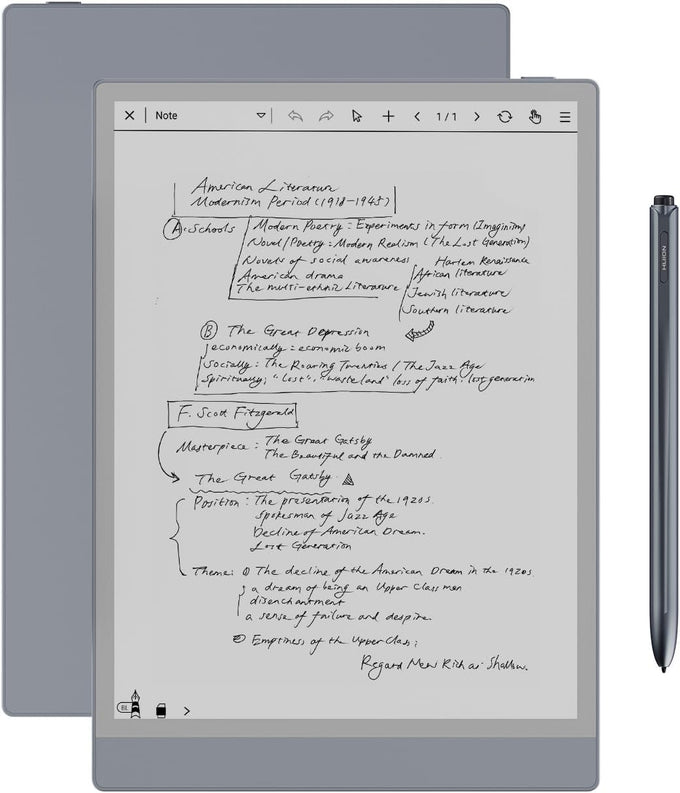 Note
1/1
American Literature
Modernism Period (1918-1945)
A. Schools
Modern Poetry: Experiments in form (Imaginism)
Novel/Poetry: Modern Realism (The Lost Generation)
Novels of social awareness
American drama
The multi-ethnic Literature
Harlem Renaissance
African literature
Jewish literature
Southern literature
B The Great Depression
economically: economic boom
Socially: The Roaring Twenties / The Jazz Age
Spiritually: "Lost", "waste land" loss of faith: lost generation
F. Scott Fitzgerald
Masterpiece: The Great Gatsby
The Beautiful and the Damned.
The Great Gatsby.
Position: The presentation of the 1920s.
spokesman of Jazz Age
Decline of American Dream.
Lost Generation
Theme: ① The decline of the American Dream in the 1920s.
a dream of being an Upper Class man
disenchantment
a sense of failure and despire.
② Emptiness of the Upper Class;
Regard New Rich as Shallow.
BL
HUION